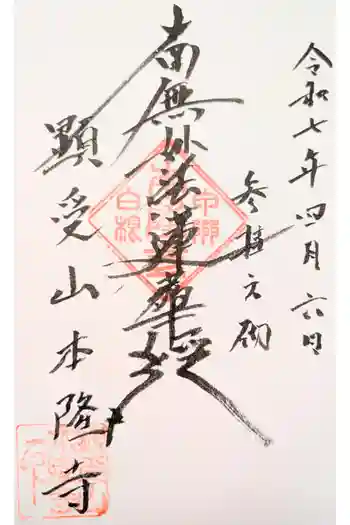 令和七年四月六日
参拝之砌
南無妙法蓮華経
顕受山本隆寺